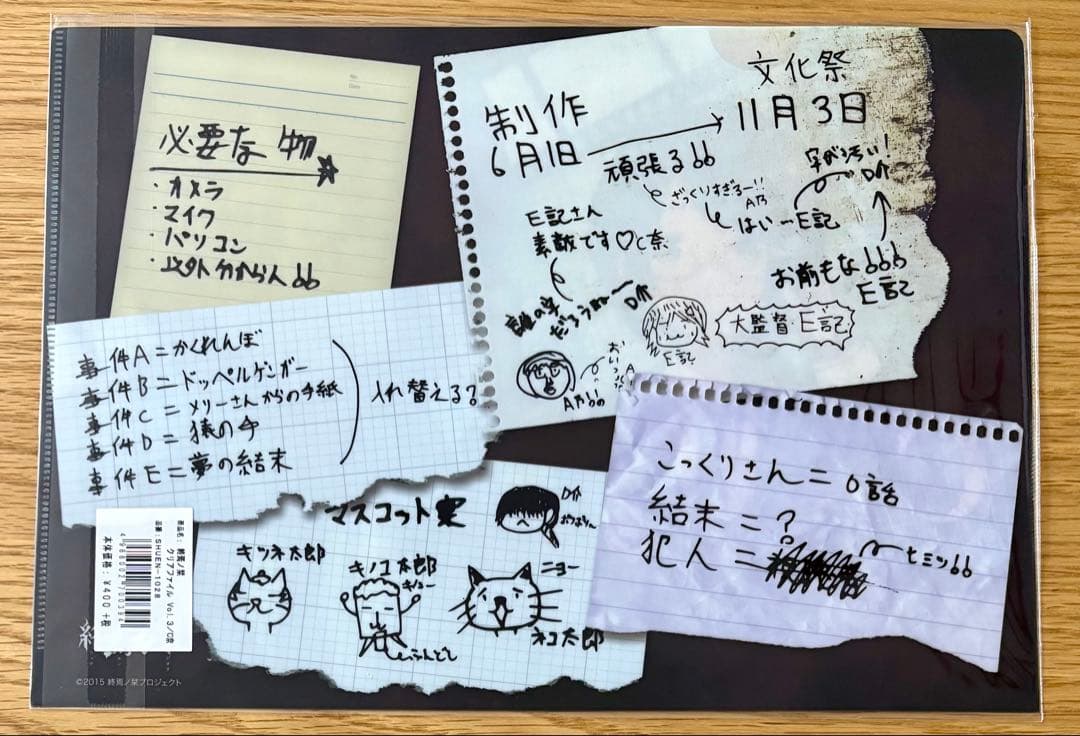 必要な物
・カメラ
・マイク
・パソコン
・以外分からんbb
文化祭
制作
11月3日
6月1日
頑張るbb
字が汚い!
D介
ざっくりすぎるー!!
A乃
はいーE記
E記さん
素敵です♡C奈
お前もなbbb
E記
誰の字
だろうねーー
D介
大監督・E記
E記
A乃bb
事件A=かくれんぼ
事件B=ドッペルゲンガー
事件C=メリーさんからの手紙
事件D=猿の手
事件E=夢の結末
入れ替える?
こっくりさん=0話
結末=?
犯人=
ヒミツbb
マスコット案
D介
キツネ太郎
キノコ太郎
キノコー
ふんどし
ニョー
ネコ太郎
商品名:終焉ノ栞
クリアファイル Vol.3/C奈
品番:SHUEN-1028
本体価格:¥400+税
©2015 終焉ノ栞プロジェクト